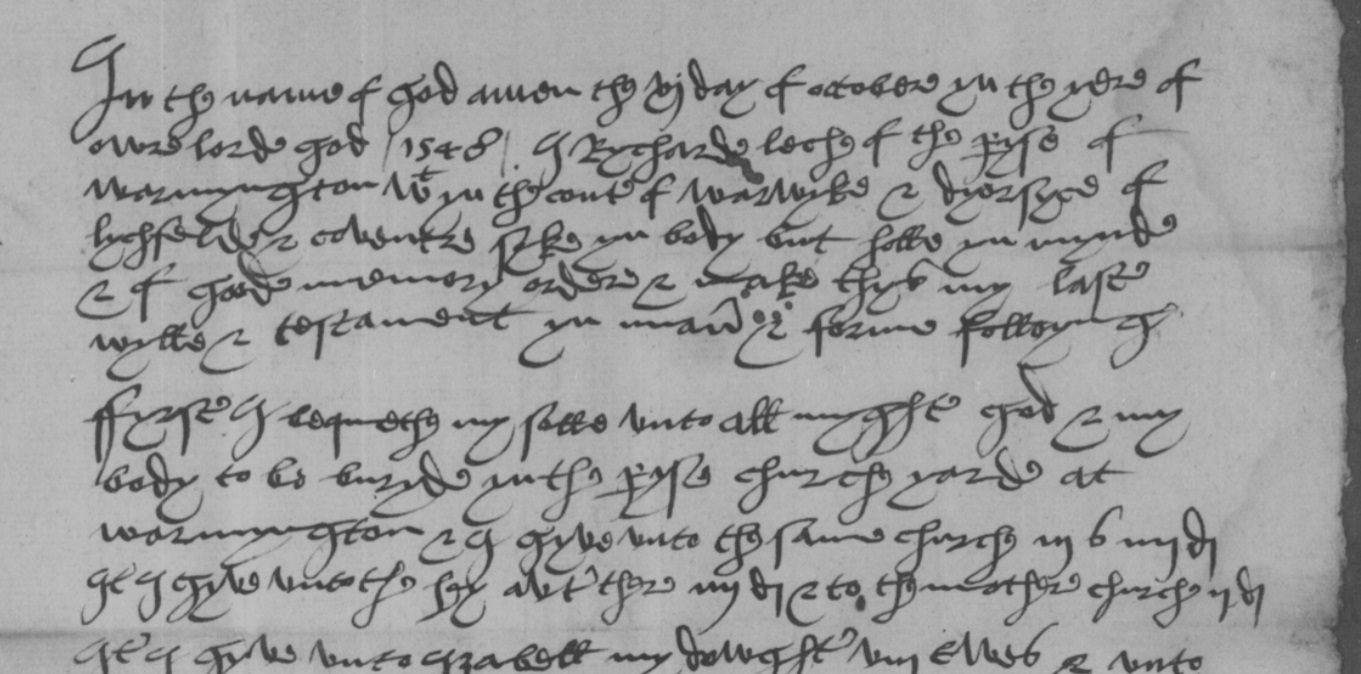 In the name of god amen the vj day of octobere yn the yere of
owre lorde god 1548 I Rycharde leche of the pyse of
warmyngton wt yn the conte of warwyke & dyosyse of
lychfelde & coventre syke yn body but holle yn mynde
& of goode memory ordere & make thys my laste
wylle & testament yn man & forme folloyng
ffyrste I bequethe my solle unto all myghte god & my
body to be buryde yn the pyse churche yarde at
warmyngton & I gyve unto the same churche iij s iiij d
Ite I gyve unto the hy awt there iiij d & to the mother churche ij d
Ite I gyve unto Izabell my dowghte viij Ewes & unto